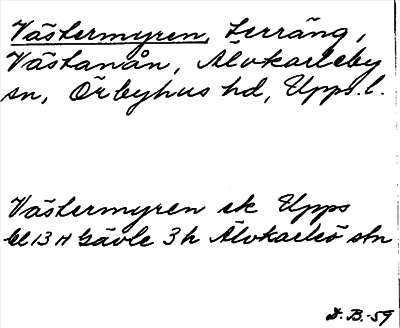 Västermyren, terräng,
Västanån, Älvkarleby
sn, Örbyhus hd, Upps. l.
Västermyren ek Upps
bl 13 H Gävle 3h Älvkarleö stn
D. B. -59